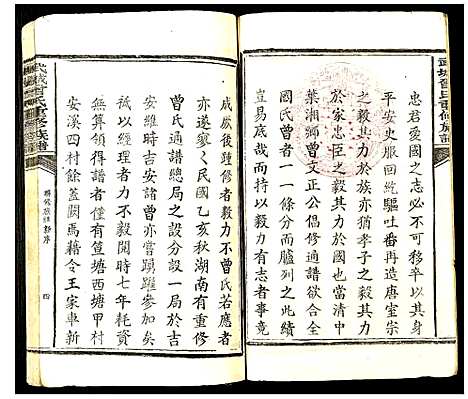 武城曾氏重修族譜
忠君愛國之志必不可移卒以其身
平安史服回紇驅吐番再造唐室宗
之毅其力於族亦猶孝子之毅其力
於家忠臣之毅其力於國
葉湘鄉曾文正公倡修通譜欲合全
國氏曾者一一條分而臚列之此績
豈易底哉而毅力有志者事竟
成厥後踵修者毅力不曾氏若應者
亦遂寥寥民國乙亥秋湖南有重修
曾氏通譜總局之設分設一局於吉
安維時吉安譜曾亦嘗踴躍參加祇
祇以經理者力不毅開時七年耗資
無算領得譜者僅有筧塘西塘甲村
安溪四村餘蓋闕焉藉令王家車新
武城曾氏重修族譜
聯修族譜新序
四